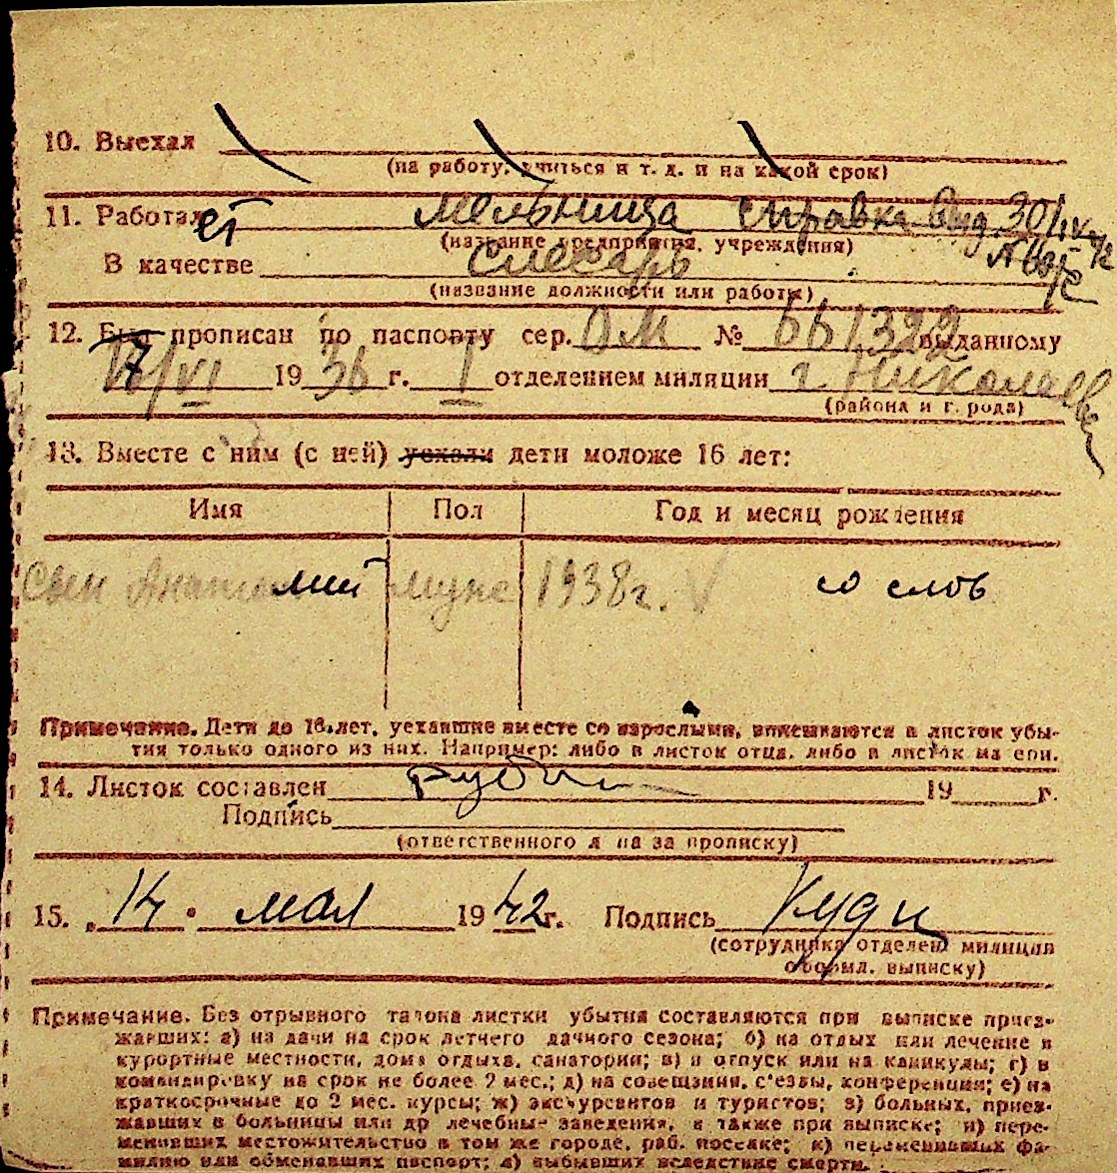 10. Выехал
(на работу, учиться и т. д. и на какой срок)
11. Работает Мельница справка выд. 30/IV
(название предприятия, учреждения)
В качестве Слесарь
(название должности или работы)
12. Был прописан по паспорту сер. ОМ № 661322 выданному
17/VI 1936 г. I отделением милиции г. Николаев
(района и города)
13. Вместе с ним (с ней) уехали дети моложе 16 лет:
Имя Пол Год и месяц рождения
Сын Анатолий муж 1938г. V со слов
Примечание. Дети до 16 лет, уехавшие вместе со взрослыми, вписываются в листок убы-
тия только одного из них. Например: либо в листок отца, либо в листок матери.
14. Листок составлен 19 г.
Подпись
(ответственного лица за прописку)
15. „14" мая 1942 г. Подпись
(сотрудника отделен. милиции
оформл. выписку)
Примечание. Без отрывного талона листки убытия составляются при выписке приез-
жавших: а) на дачи на срок летнего дачного сезона; б) на отдых или лечение в
курортные местности, дома отдыха, санатории; в) в отпуск или на каникулы; г) в
командировку на срок не более 2 мес.; д) на совещания, с'езды, конференции; е) на
краткосрочные до 2 мес. курсы; ж) экскурсантов и туристов; з) больных, приез-
жавших в больницы или др лечебные заведения, а также при выписке; и) пере-
менивших местожительство в том же городе, раб. поселке; к) переменивших фа-
милию или обменявших паспорт; л) выбывших вследствие смерти.